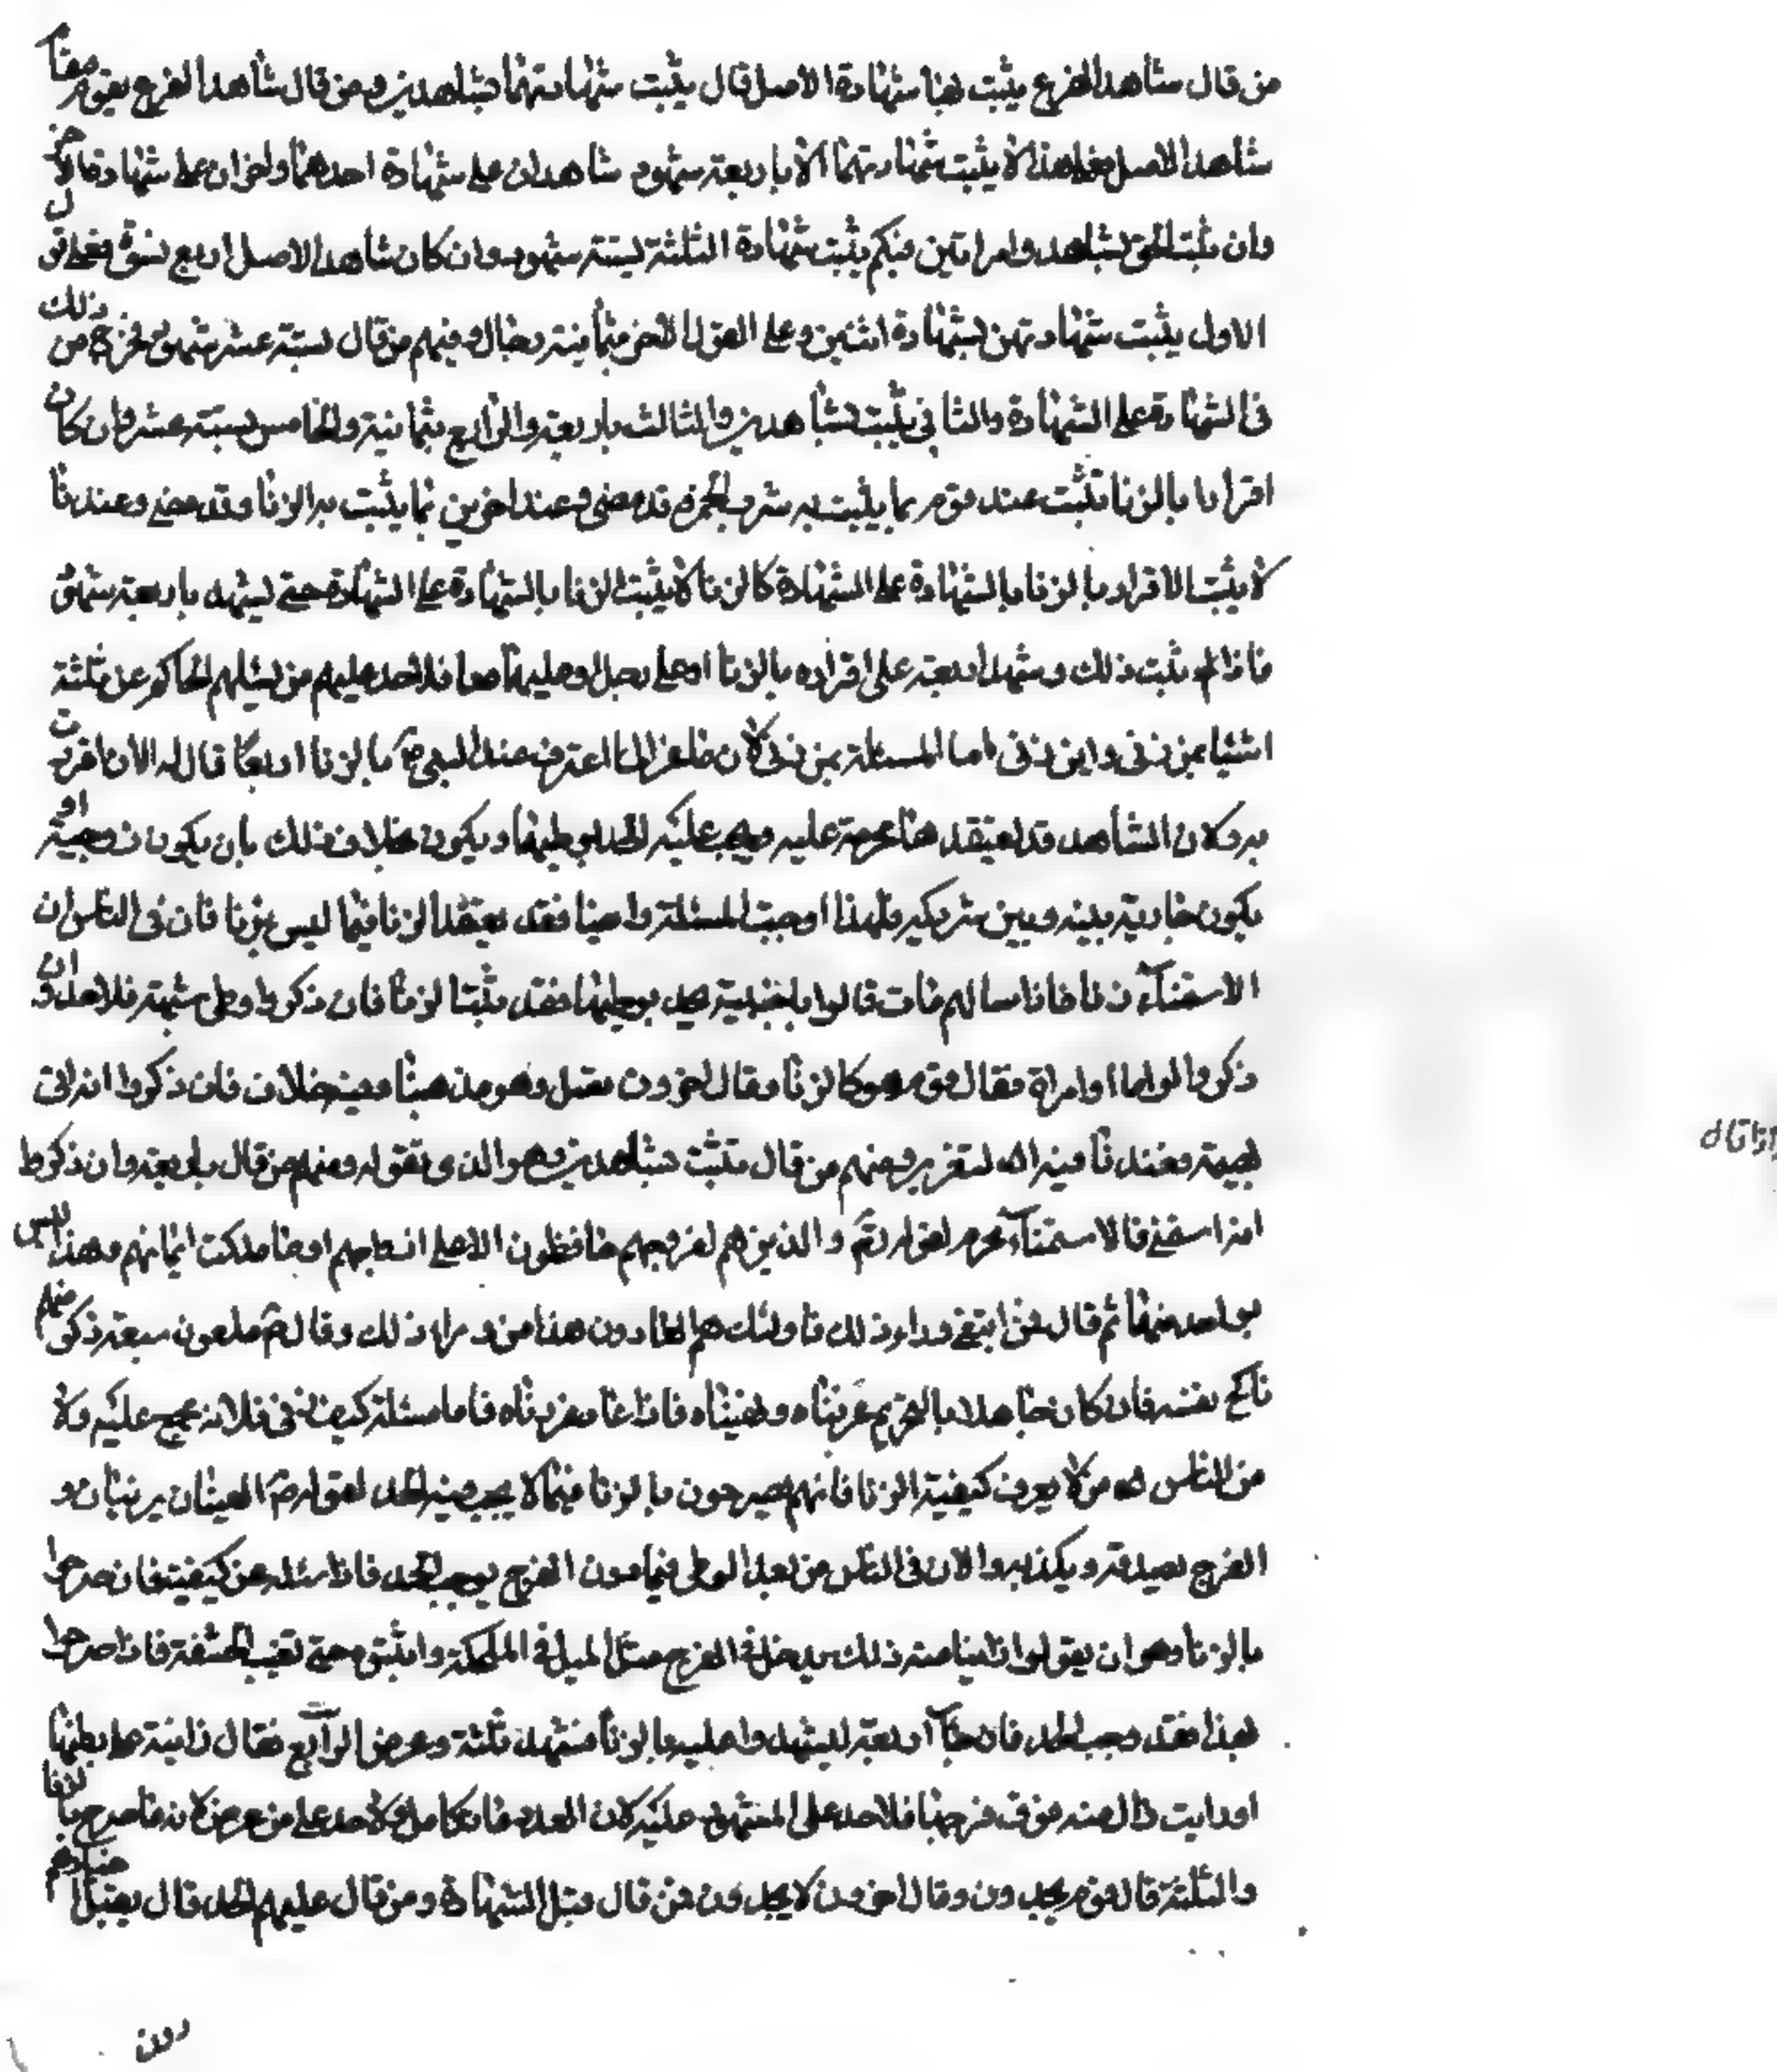 من قال شاهد الفرع يثبت بهما شهادة الاصل قال يثبت شهادتهما بشاهدين ومن قال شاهد الفرع يقوم مقام
شاهد الاصل فعلى هذا لا يثبت شهادتهما الا باربعة شهود شاهدان على شهادة احدهما واخران على شهادة الاخر
وان يثبت الحق بشاهد وامراتين فبكم يثبت شهادة الثلثة بستة شهود وان كان شاهد الاصل اربع نسوة فعلى قول
الاول يثبت شهادتهن بشهادة اثنين وعلى القول الاخر بثمانية رجال وفيهم من قال بستة عشر شهود يخرج من ذلك
فى الشهادة على الشهادة والثانى يثبت بشاهدين والثالث باربعة والرابع بثمانية والخامس بستة عشر وان كان
اقرارا بالزنا تثبت عند قوم بما يثبت به شرب الخمر وقد مضى وعند اخرين بما يثبت به الزنا وقد مضى وعندنا
لا يثبت الاقرار بالزنا بالشهادة على الشهادة كالزنا لا يثبت الزنا بالشهادة على الشهادة حتى يشهد باربعة شهود
فاذا لم يثبت ذلك وشهد اربعة على اقراره بالزنا او على رجل وعليها معا فلا حد عليهم من يسئلهم الحاكم عن ثلثة
اشيا بمن زنى واين زنى اما المسئلة بمن زنى لان ماعزا لما اعترف عند النبى ص بالزنا اربعا قال له الان اقررت
به ولان الشاهد قد يعتقد هنا محرمة عليه ويجب عليه الحد بوطيها ويكون بخلاف ذلك بان يكون زوجته او
يكون جارية بينه وبين شريكه فلهذا اوجبت المسئلة وايضا فقد يعتقد الزنا فيما ليس بزنا فان فى الناس ان
الاستمناء زنا فاذا سالهم فان قالوا باجنبية بوطيها فقد يثبت الزنا فان ذكروا وطى شبهة فلا حد وان
ذكروا لواطا او امراة فقال قوم هو كالزنا وقال اخرون يقتل وهو مذهبنا وفيه خلاف فان ذكروا انه اتى
بهيمة فعندنا فيه التعزير ومنهم من قال يثبت بشاهدين وهو الذى نقوله ومنهم من قال باربعة وان ذكروا
انه استمنى فالاستمناء محرم لقوله تع والذين هم لفروجهم حافظون الا على ازواجهم او ما ملكت ايمانهم وهذا ليس
بواحد منهما ثم قال فمن ابتغى وراء ذلك فاولئك هم العادون هذا من وراء ذلك وقال ع ملعون سبعة ذكر منهم
ناكح نفسه فان كان جاهلا بالتحريم عرفناه ونهيناه فاذا عاد عزرناه فاما مسئلة كيف زنى فلانه يجب عليه ولان
من الناس من لا يعرف كيفية الزنا فانهم يصرحون بالزنا فيما لا يجب فيه الحد لقوله ص العينان يزنيان و
الفرج يصدقه ويكذبه والان فى الناس من يعد الوطى فيما دون الفرج يوجب الحد فاذا سئله عن كيفيته فان صرحوا
بالزنا وهو ان يقولوا راينا منه ذلك يدخل فى الفرج مثل الميل فى المكحلة واثبتوه حتى تغيب الحشفة فاذا صرحوا
بهذا فقد وجب الحد فان جاء اربعة ليشهدوا عليه بالزنا فشهد ثلثة وعرض الرابع فقال زانية على بطنها
او رايت ذا لعنه فوق فرجها فلا حد على المشهود عليه لان العدد ما تكامل ولا حد على من عرض لانه ما صرح بالزنا
والثلثة قال قوم يحدون وقال اخرون لا يحدون فمن قال قبل الشهادة ومن قال عليهم الحد قال يقبل اخبارهم
دون